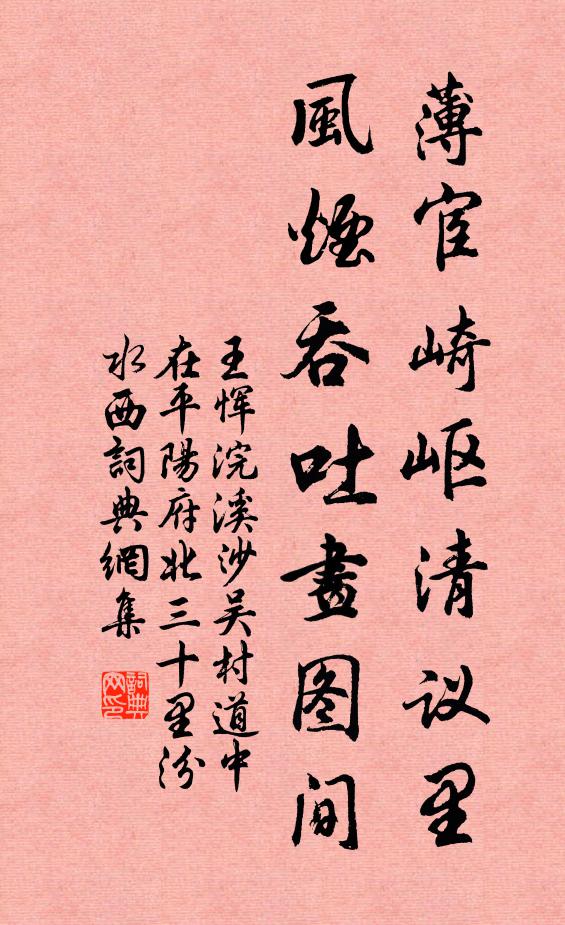 薄宦崎岖清议里
風煙吞吐畫图间
王恽浣溪沙吴村道中
在平陽府北三十里汾
水西詞典網集
詞典網印